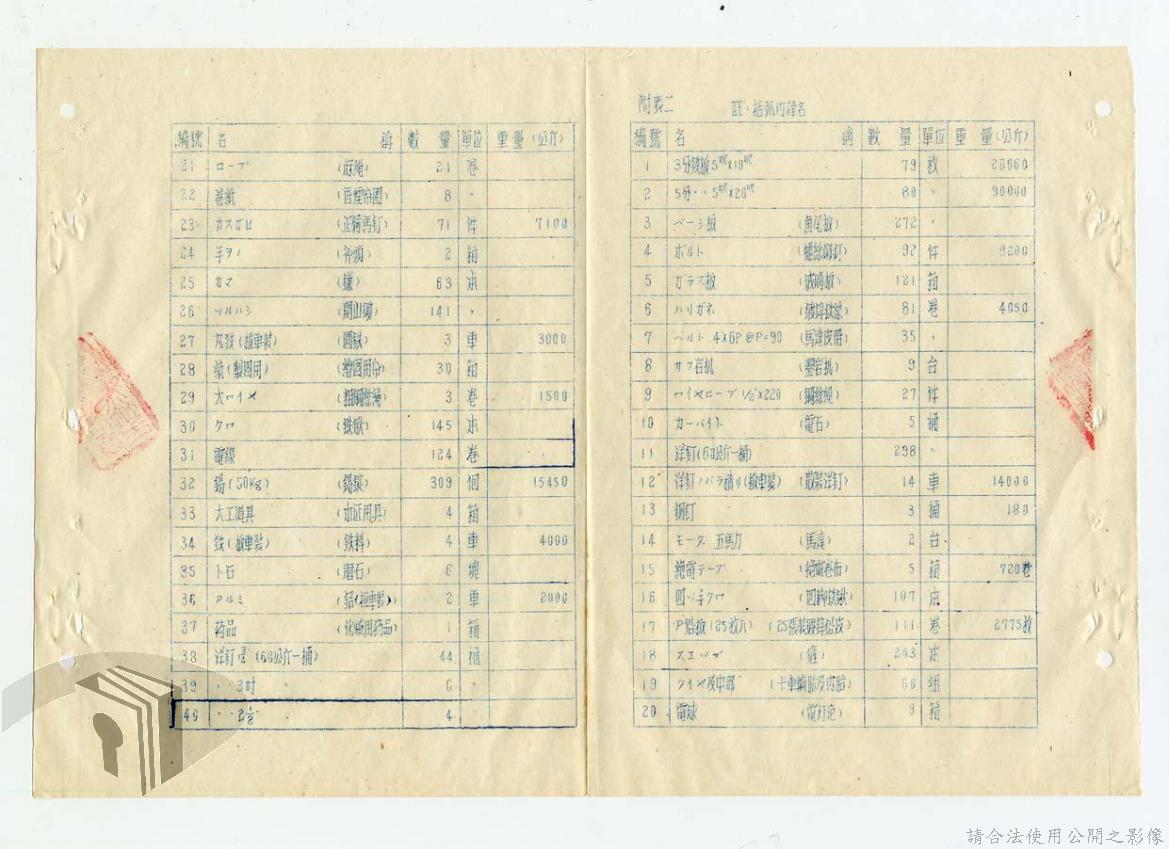 附表二
註：括弧內譯名
編號 名 稱 數 量 單位 重 量(公斤)
1 3分鉄板5呎X10呎 79 枚 28660
2 5分〃〃5呎X20呎 80 〃 90000
3 ベーシ板 (魚尾板) 272 〃
4 ボルト (螺絲鉚釘) 92 件 9200
5 ガラス板 (玻璃板) 121 箱
6 ハリガネ (鉄絲) 81 卷 4050
7 ベルト 4"X6P @P=90 (馬達皮帶) 35 〃
8 サク岩扒 (鑿岩扒) 9 台
9 ワイヤロープ 1/2"X220 (鋼絲繩) 27 件
10 カーバイト (電石) 5 桶
11 洋釘(60公斤一桶) 298 〃
12 洋釘ノバラ積リ(撿車裝) (散裝洋釘) 14 車 14000
13 鋼釘 3 桶 180
14 モータ 五馬力 (馬達) 2 台
15 絶電テープ (絶電卷布) 5 箱 720卷
16 四ツ手クワ (四脚鉄鍬) 107 本
17 P鉛板(25枚入) (25張裝鉛皮) 111 卷 2775枚
18 スコップ 263 本
19 タイヤ及中部 (卡車輪胎及內胎) 66 組
20 電球 (電灯泡) 9 箱
編號 品 稱 數 量 單位 重量(公斤)
21 ロープ (麻繩) 21 卷
22 卷紙 8 〃
23 カスガヒ (正騎馬釘) 71 件 7100
24 手ヲノ (斧頭) 2 箱
25 カマ (鐮) 63 本
26 ツルハシ (開山鋤) 141 〃
27 丸鉄(撿車裝) (圓鉄) 3 車 3000
28 (製圖用) (繪圖用) 30 箱
29 大ワイヤ (粗鋼絲繩) 3 卷 1500
30 クワ (鉄鍬) 145 本
31 電線 124 卷
32 錫(50Kg) (錫錠) 309 個 15450
33 大工道具 (木匠用具) 4 箱
34 鉄(撿車裝) (鉄料) 4 車 4000
35 ト石 (磨石) 6 塊
36 アルミ (鋁(撿車裝)) 2 車 2000
37 葯品 (化驗用葯品) 1 箱
38 洋釘 (60公斤一桶) 44 桶
39 〃〃 3吋 〃 6 〃
40 〃〃 2½ 〃 4
請合法使用公開之影像